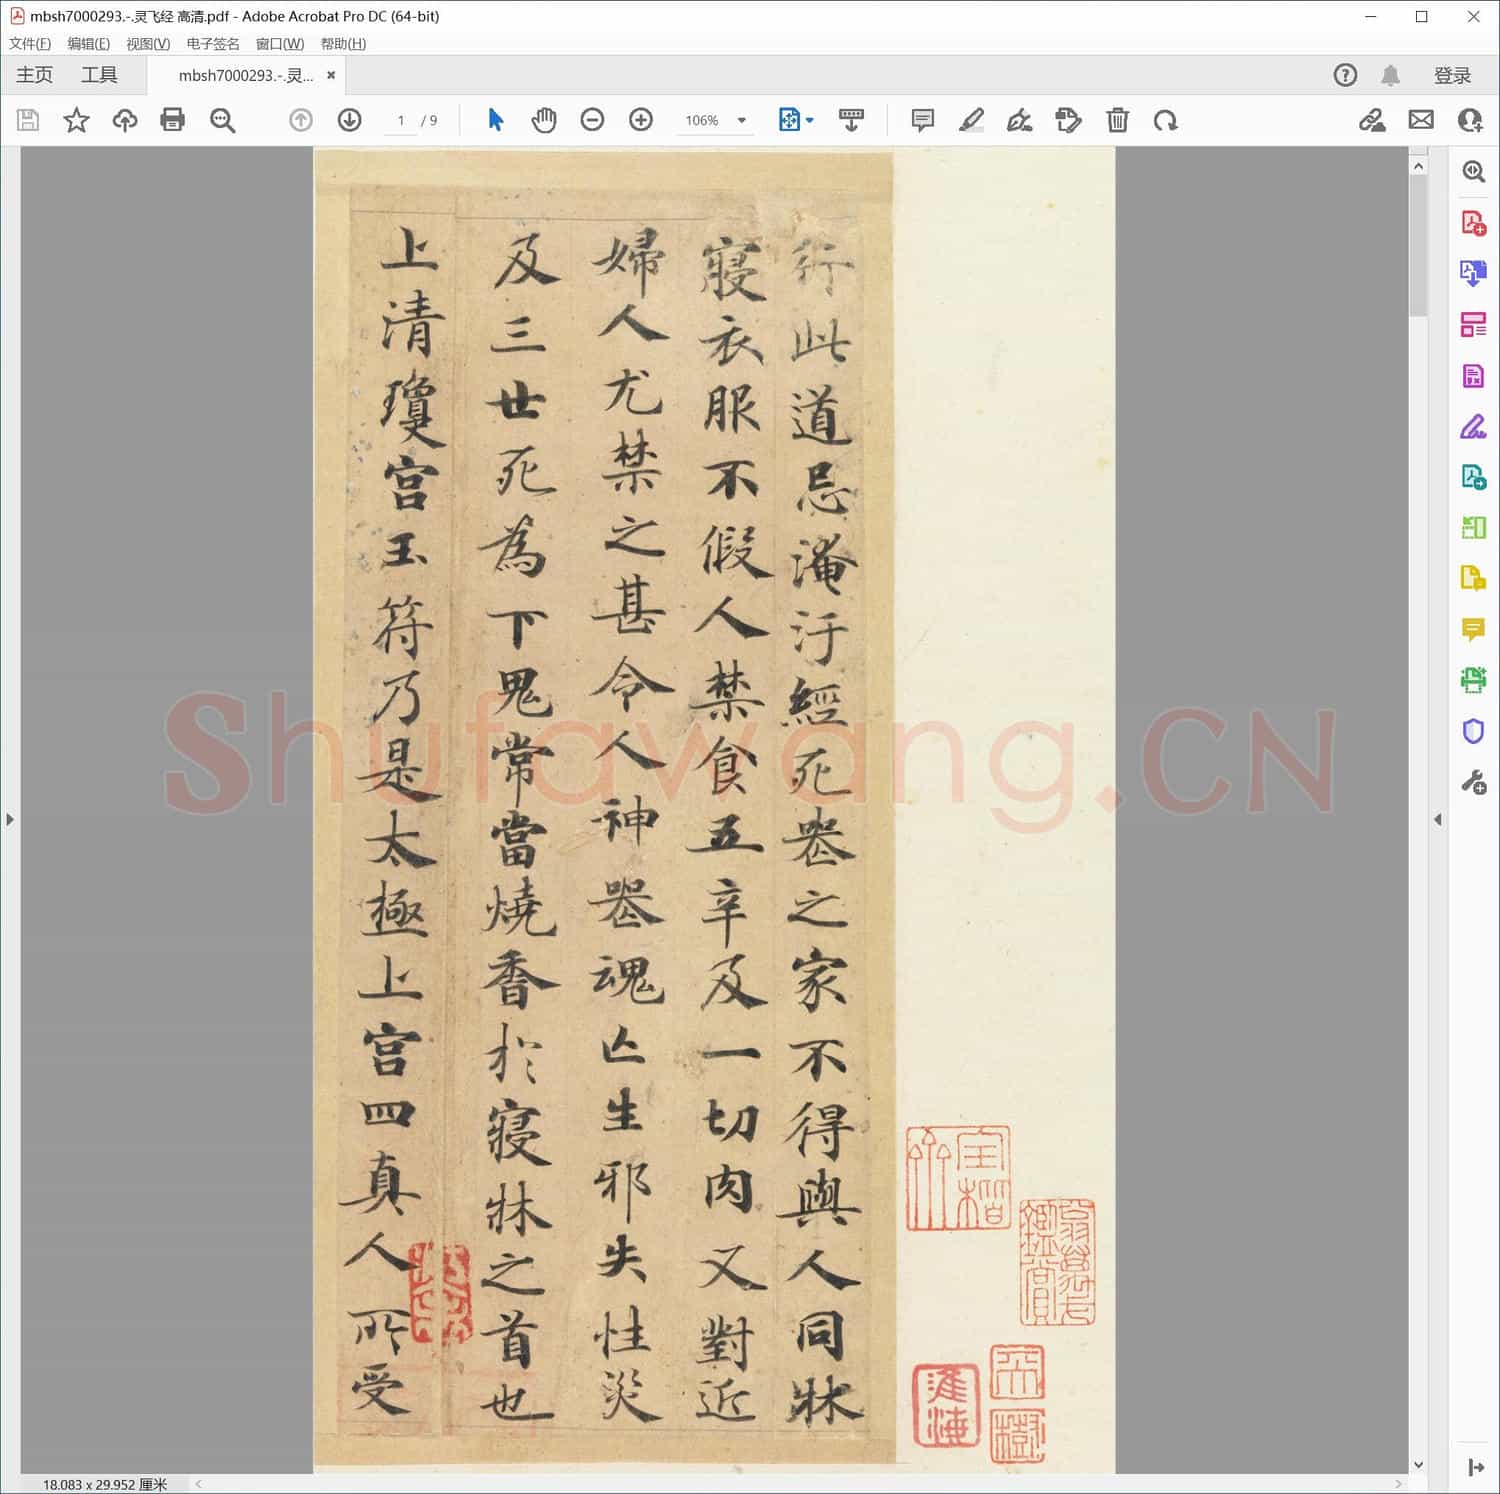 mbsh7000293.-.灵飞经 高清.pdf - Adobe Acrobat Pro DC (64-bit)
文件(F) 编辑(E) 视图(V) 电子签名 窗口(W) 帮助(H)
主页 工具 mbsh7000293.-.灵... × 登录
1 / 9 106%
行此道忌淹汙經死喪之家不得與人同牀
寢衣服不假人禁食五辛及一切肉又對近
婦人尤禁之甚令人神喪魂亡生邪失性災
及三世死為下鬼常當燒香於寢牀之首也
上清瓊宮玉符乃是太極上宮四真人所受
Shufawang.CN
18.083 x 29.952 厘米